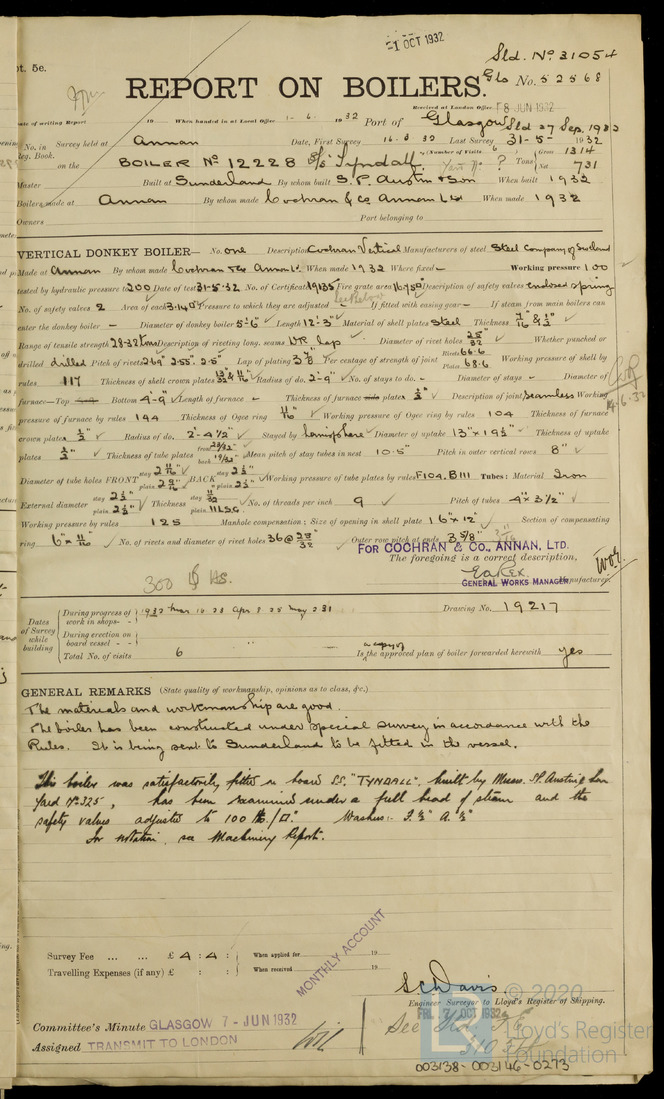 -1 OCT 1932
pt. 5e.
Sld. No 31054
REPORT ON BOILERS.
Gls No. 52568
Received at London Office 8 JUN 1932
Date of writing Report 19 When handed in at Local Office 1-6-1932 Port of Glasgow Sld 27 Sep. 1932
No. in Survey held at Annan Date, First Survey 16-3-32 Last Survey 31-5-1932
Reg. Book. (Number of Visits 6) Gross 1314
on the BOILER No 12228 S/S Tyndall. Yard No ? Tons Net 731
Master Built at Sunderland By whom built S.P. Austin & Son When built 1932
Boilers made at Annan By whom made Cochran & Co Annan Ltd When made 1932
Owners Port belonging to
VERTICAL DONKEY BOILER— No. one Description Cochran Vertical Manufacturers of steel Steel Company of Scotland
Made at Annan By whom made Cochran & Co Annan Ld. When made 1932 Where fixed - Working pressure 100
tested by hydraulic pressure to 200 Date of test 31-5-32 No. of Certificate 19135 Fire grate area 16.75 Description of safety valves enclosed spring
No. of safety valves 2 Area of each 3.140" Pressure to which they are adjusted See Below If fitted with easing gear - If steam from main boilers can
enter the donkey boiler - Diameter of donkey boiler 5'-6" Length 12'-3" Material of shell plates Steel Thickness 7/16" & 1/2"
Range of tensile strength 28-32 tons Description of riveting long. seams DR lap Diameter of rivet holes 25/32 Whether punched or
drilled drilled Pitch of rivets 2.69" 2.55" 2.5" Lap of plating 3 7/8 Per centage of strength of joint Rivets 66.6 Plain 68.6 Working pressure of shell by
rules 117 Thickness of shell crown plates 13/32 & 9/16 Radius of do. 2'-9" No. of stays to do. - Diameter of stays - Diameter of
furnace—Top Bottom 4-9 Length of furnace - Thickness of furnace plates 1/2" Description of joint Seamless Working
pressure of furnace by rules 144 Thickness of Ogee ring 11/16 Working pressure of Ogee ring by rules 104 Thickness of furnace
crown plates 1/2" Radius of do. 2'-4 1/2" Stayed by hemisphere Diameter of uptake 13" x 19 1/2" Thickness of uptake
plates 1/2" Thickness of tube plates front 23/32" back 19/32" Mean pitch of stay tubes in nest 10.5 Pitch in outer vertical rows 8"
Diameter of tube holes FRONT stay 2 9/16" plain 2 9/16" BACK stay 2 1/2" plain 2 1/2" Working pressure of tube plates by rules F104. B111 Tubes: Material Iron
External diameter stay 2 1/2" plain 2 1/2" Thickness stay 11/32 plain 11 L.S.G. No. of threads per inch 9 Pitch of tubes 4" x 3 1/2"
Working pressure by rules 125 Manhole compensation: Size of opening in shell plate 16" x 12" Section of compensating
ring 6" x 11/16 No. of rivets and diameter of rivet holes 36 @ 25/32 Outer row pitch at ends 3 5/8"
FOR COCHRAN & Co., ANNAN, LTD.
The foregoing is a correct description,
GENERAL WORKS MANAGER. Manufacturer.
Dates of Survey while building
During progress of work in shops - - 1932 Mar 16 28 Apr 8 25 May 23 31
Drawing No. 19217
During erection on board vessel - - -
Total No. of visits 6
Is a copy of the approved plan of boiler forwarded herewith yes
GENERAL REMARKS (State quality of workmanship, opinions as to class, &c.)
The materials and workmanship are good.
The boiler has been constructed under special survey in accordance with the
Rules. It is being sent to Sunderland to be fitted in the vessel.
This boiler was satisfactorily fitted on board S.S. "TYNDALL", built by Messrs. S.P. Austin & Son
Yard No. 325, has been examined under a full head of steam and the
safety valves adjusted to 100 lb./□".
For notation, see Machinery Report.
MONTHLY ACCOUNT
Survey Fee ... ... £ 4 : 4 : When applied for 19
Travelling Expenses (if any) £ : : When received 19
S.C. Davis
Engineer Surveyor to Lloyd's Register of Shipping.
FRI. 7 OCT 1932
Committee's Minute GLASGOW 7 - JUN 1932
Assigned TRANSMIT TO LONDON
© 2020
Lloyd's Register
Foundation
003138-003146-0273